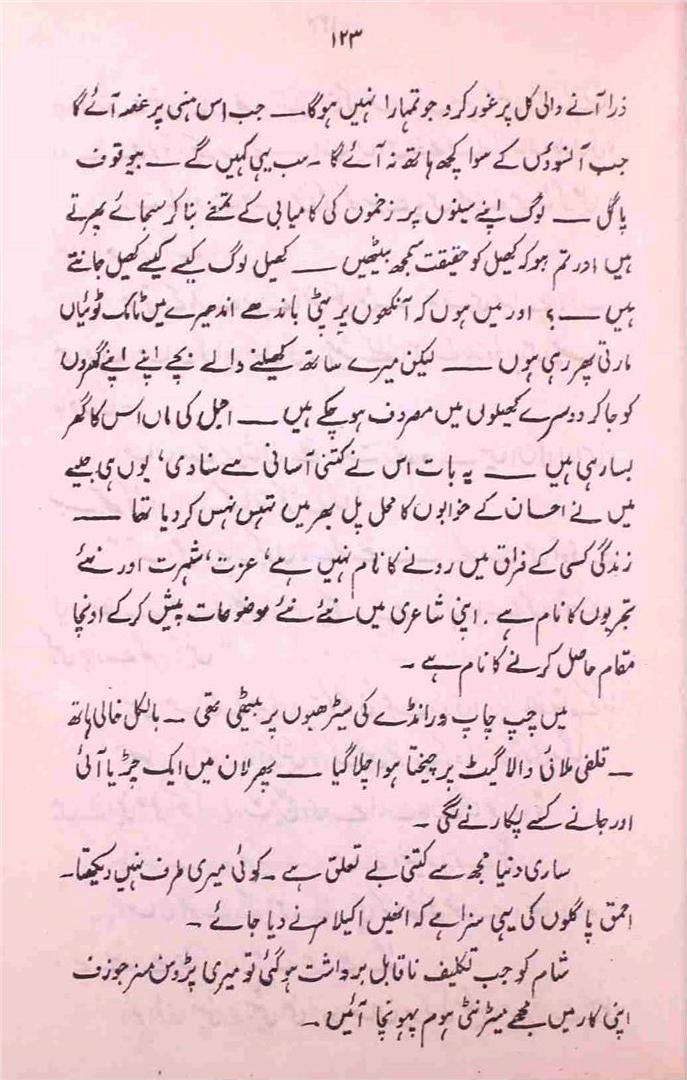 ۱۲۳
ذرا آنے والی کل پر غور کرو جو تمہارا نہیں ہوگا ــــ جب اس ہنسی پر غصہ آئے گا
جب آنسوؤں کے سوا کچھ ہاتھ نہ آئے گا ۔ سب یہی کہیں گے ــ بیوقوف
پاگل ــــ لوگ اپنے سینوں پر زخموں کی کامیابی کے تمغے بنا کر سجائے پھرتے
ہیں اور تم ہو کہ کھیل کو حقیقت سمجھ بیٹھیں ــــ کھیل لوگ کیسے کیسے کھیل جانتے
ہیں ــــ ؟ اور میں ہوں کہ آنکھوں پر پٹی باندھے اندھیرے میں ٹامک ٹوئیاں
مارتی پھر رہی ہوں ــــ لیکن میرے ساتھ کھیلنے والے بچے اپنے اپنے گھروں
کو جا کر دوسرے کھیلوں میں مصروف ہو چکے ہیں ــــ اجمل کی ماں اس کا گھر
بسا رہی ہیں ــــ یہ بات اس نے کتنی آسانی سے سنا دی، یوں ہی جیسے
میں نے احسان کے خوابوں کا محل پل بھر میں تہس نہس کر دیا تھا ــــ
زندگی کسی کے فراق میں رونے کا نام نہیں ہے، عزت، شہرت اور نئے
تجربوں کا نام ہے ۔ اپنی شاعری میں نئے نئے موضوعات پیش کر کے اونچا
مقام حاصل کرنے کا نام ہے ۔
میں چپ چاپ ورانڈے کی سیڑھیوں پر بیٹھی تھی ــ بالکل خالی ہاتھ
ــ قلفی ملائی والا گیٹ پر چیختا ہوا چلا گیا ــــ پھر لان میں ایک چڑیا آئی
اور جانے کسے پکارنے لگی ۔
ساری دنیا مجھ سے کتنی بے تعلق ہے ۔ کوئی میری طرف نہیں دیکھتا ۔
احمق پاگلوں کی یہی سزا ہے کہ انھیں اکیلا مرنے دیا جائے ۔
شام کو جب تکلیف ناقابل برداشت ہو گئی تو میری پڑوسن مسز جوزف
اپنی کار میں مجھے میٹرنٹی ہوم پہونچا آئیں ۔